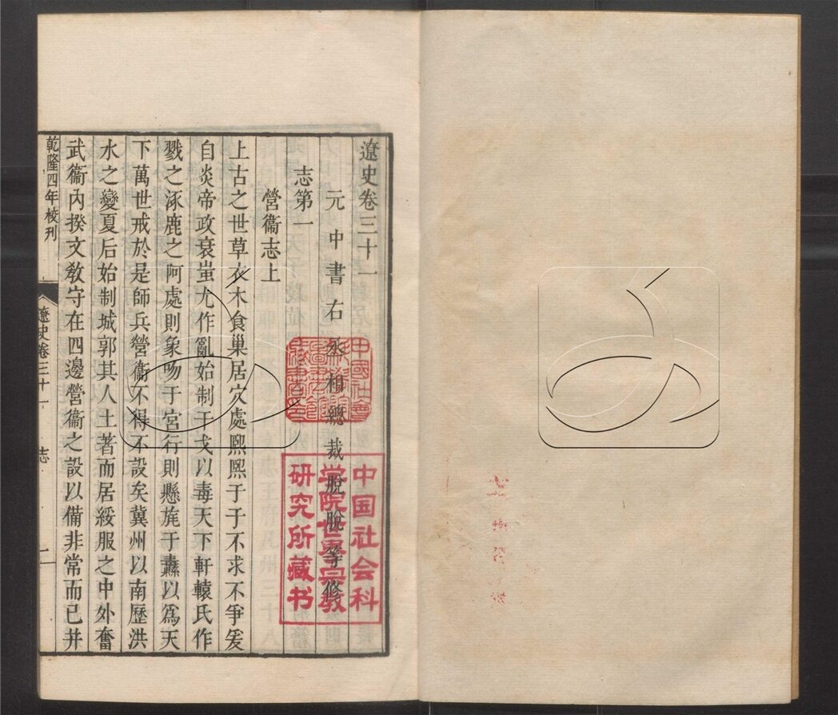 遼史卷三十一
元中書右丞相總裁脫脫等修
志第一
營衞志上
上古之世草衣木食巢居穴處熙熙于于不求不爭爰
自炎帝政衰蚩尤作亂始制干戈以毒天下軒轅氏作
戮之涿鹿之阿處則象吻于宮行則懸旄于纛以爲天
下萬世戒於是師兵營衞不得不設矣冀州以南歷洪
水之變夏后始制城郭其人土著而居綏服之中外奮
武衞內揆文敎守在四邊營衞之設以備非常而已并
乾隆四年校刊
遼史卷三十一
志
一
中国社会科
学院世界宗教
研究所藏书